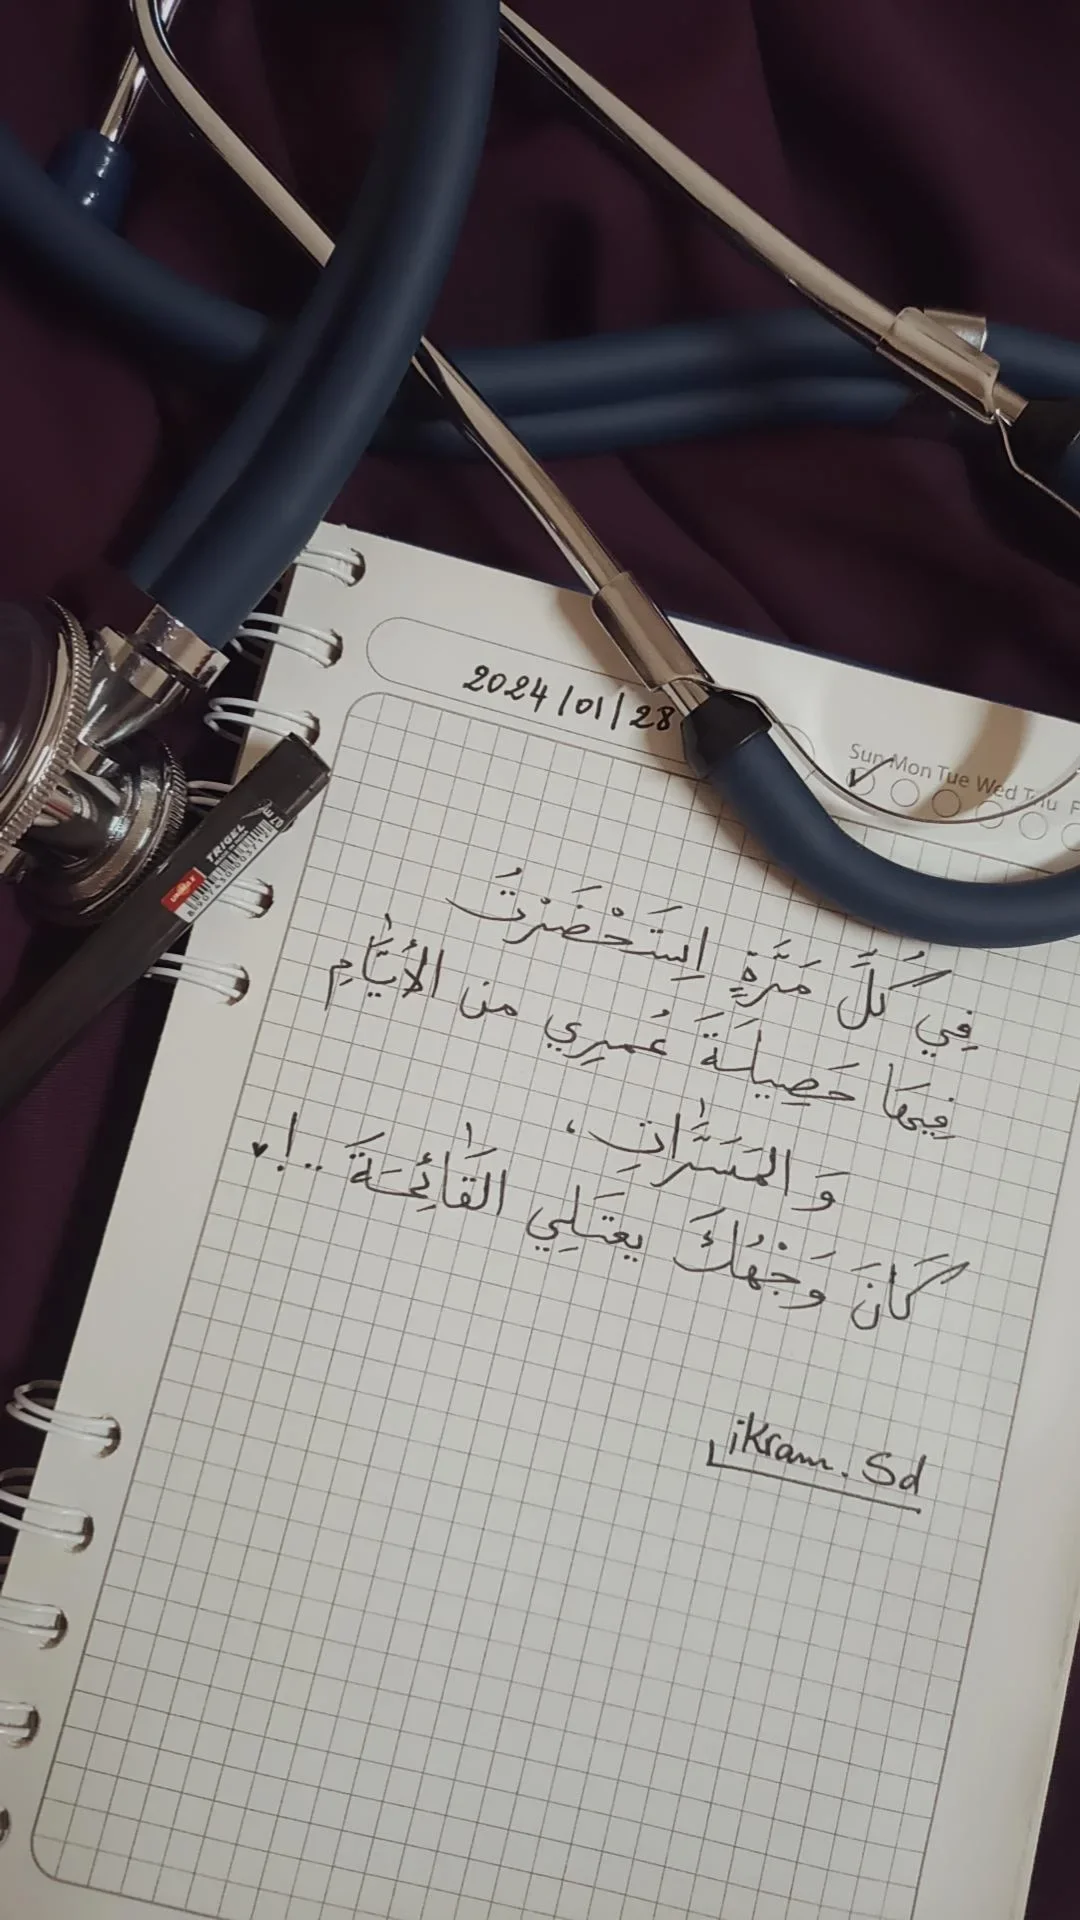 2024/01/28
Sun Mon Tue Wed Thu F
TRIGEL
UNIMAX
فِي كُلِّ مَرَّةٍ اِستَحْضَرْتُ
فِيهَا حَصِيلَةَ عُمرِي من الأيَّامِ
وَ المَسَرَّاتِ ،
كَانَ وَجْهُكَ يعتَلِي القَائِمَةَ ..!♥
iKram. Sd